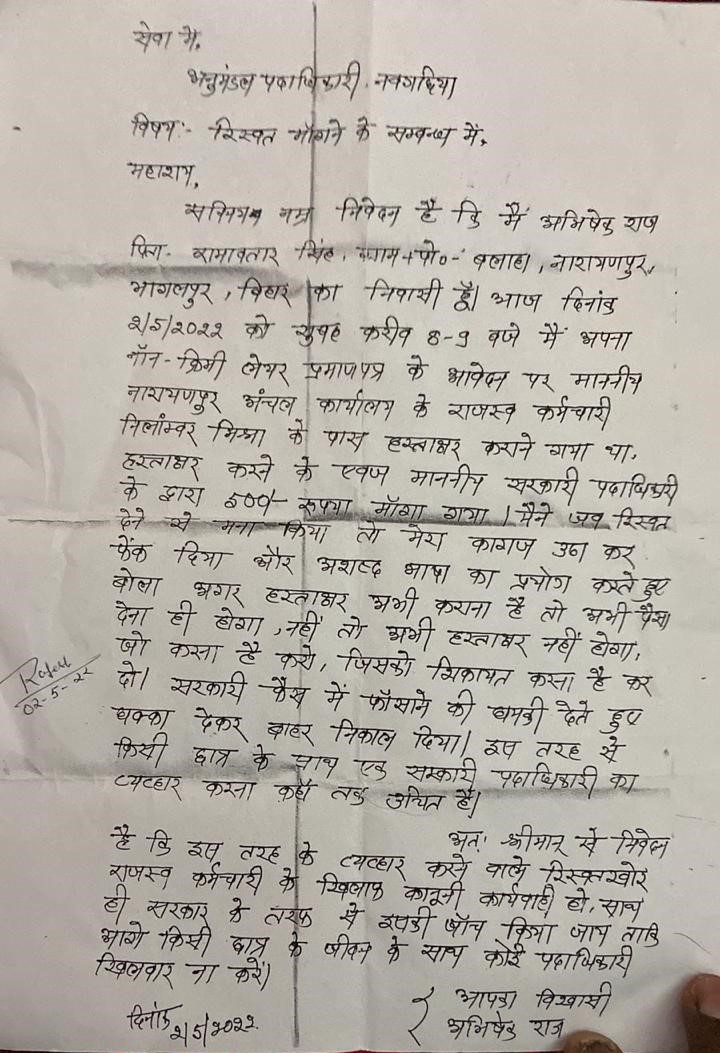 सेवा में,
अनुमंडल पदाधिकारी, नवगछिया
विषय:- रिस्वत माँगने के सम्बन्ध में,
महाशय,
सविनय नम्र निवेदन है कि मैं अभिषेक राज
पिता- रामावतार सिंह, ग्राम+पो०- बलाहा, नारायणपुर,
भागलपुर, बिहार का निवासी हूँ। आज दिनांक
2/5/2022 को सुबह करीब 8-9 बजे मैं अपना
नॉन-क्रिमी लेयर प्रमाणपत्र के आवेदन पर माननीय
नारायणपुर अंचल कार्यालय के राजस्व कर्मचारी
निलांम्बर मिश्रा के पास हस्ताक्षर कराने गया था,
हस्ताक्षर करने के एवज माननीय सरकारी पदाधिकारी
के द्वारा 500/- रूपया माँगा गया। मैंने जब रिस्वत
देने से मना किया तो मेरा कागज उठा कर
फेंक दिया और अशब्द भाषा का प्रयोग करते हुए
बोला अगर हस्ताक्षर अभी कराना है तो अभी पैसा
देना ही होगा, नहीं तो अभी हस्ताक्षर नहीं होगा,
जो करना है करो, जिसको शिकायत करना है कर
दो। सरकारी केस में फॉसाने की धमकी देते हुए
धक्का देकर बाहर निकाल दिया। इस तरह से
किसी छात्र के साथ एक सरकारी पदाधिकारी का
व्यवहार करना कहाँ तक उचित है।
अतः श्रीमान् से निवेदन
है कि इस तरह के व्यवहार करने वाले रिस्वतखोर
राजस्व कर्मचारी के खिलाफ कानूनी कार्यवाही हो, साथ
ही सरकार के तरफ से इसकी जाँच किया जाय ताकि
आगे किसी छात्र के जीवन के साथ कोई पदाधिकारी
खिलवार ना करें।
आपका विश्वासी
अभिषेक राज
दिनांक 2/5/2022
02-5-22